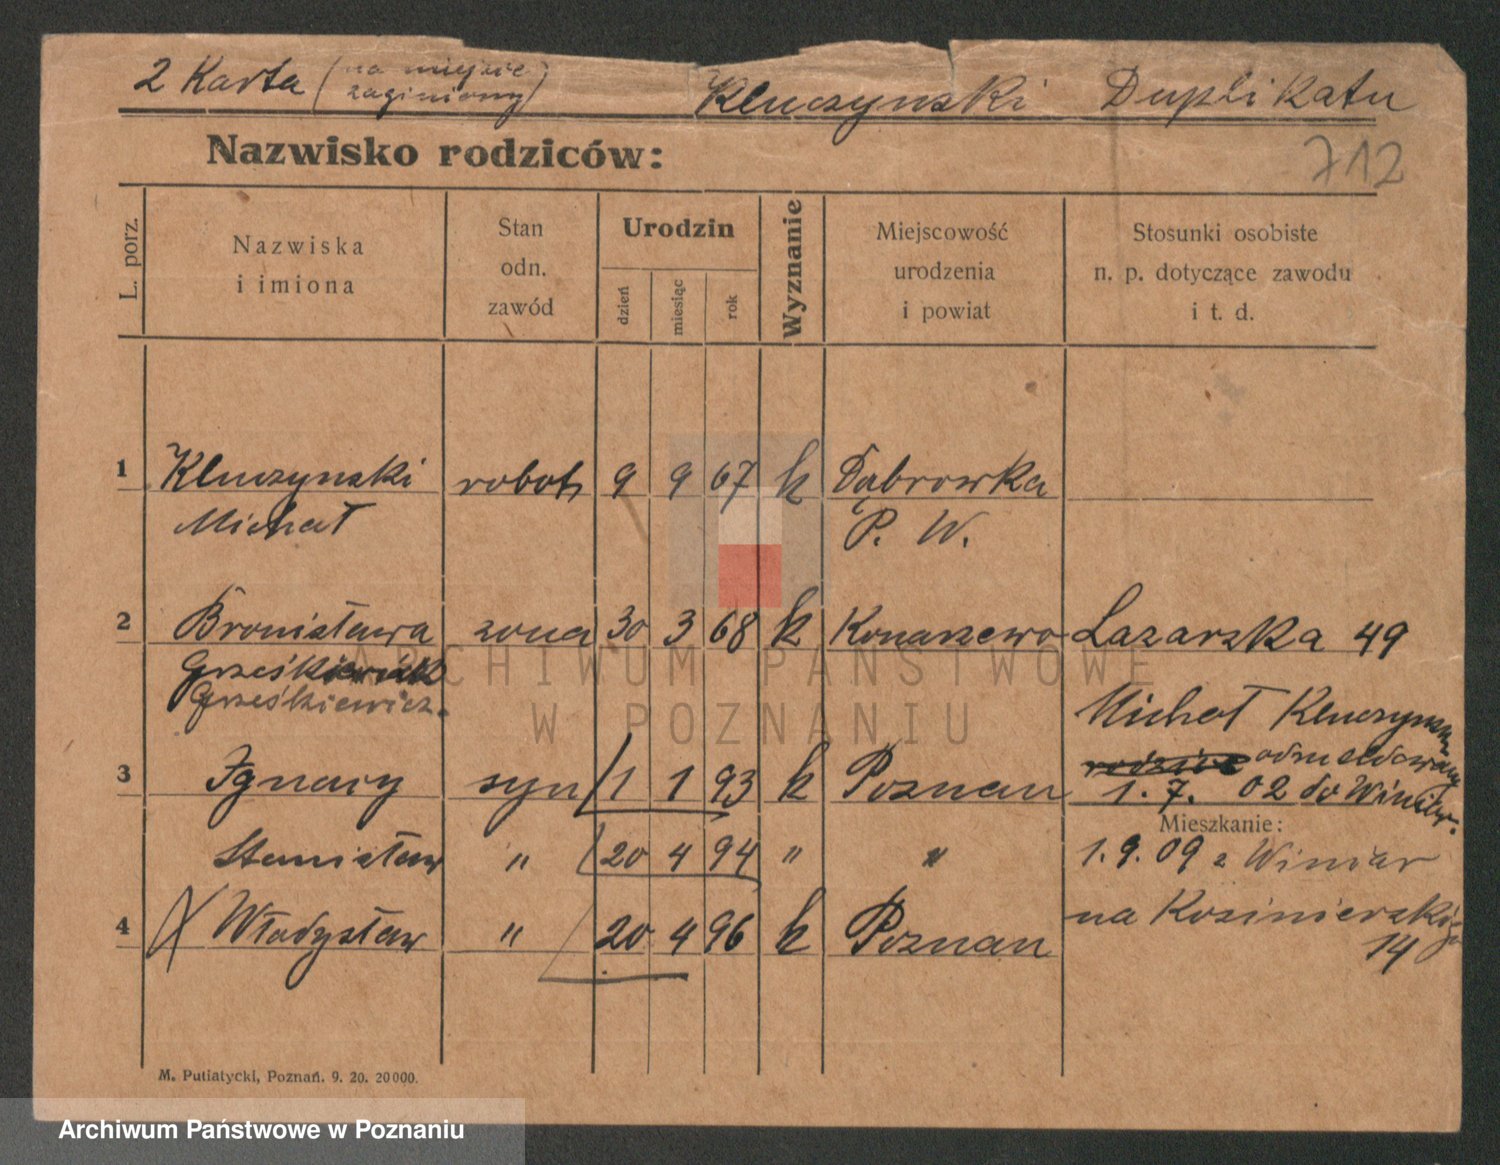 2 Karta (na miejsce
zaginiony)
Kluczynski Duplikatu
712
Nazwisko rodziców:
L. porz.
Nazwiska
i imiona
Stan
odn.
zawód
Urodzin
dzień
miesiąc
rok
Wyznanie
Miejscowość
urodzenia
i powiat
Stosunki osobiste
n. p. dotyczące zawodu
i t. d.
1 Kluczynski robotn 9 9 67 k Dąbrowka
Michał P. W.
2 Bronisława zona 30 3 68 k Konarzewo Łazarska 49
Grześkiewicz
Grześkiewicz.
Michał Kluczynski
rodzice odmeldowany
3 Ignacy syn 1 1 93 k Poznan 1.7. 02 do Winiar.
Mieszkanie:
Stanisław " 20 4 94 " " 1.9.09 z Winiar
na Kosinierską
4 Władysław " 20 4 96 k Poznan 14
M. Putiatycki, Poznań. 9. 20. 20000.
ARCHIWUM PAŃSTWOWE
W POZNANIU
Archiwum Państwowe w Poznaniu